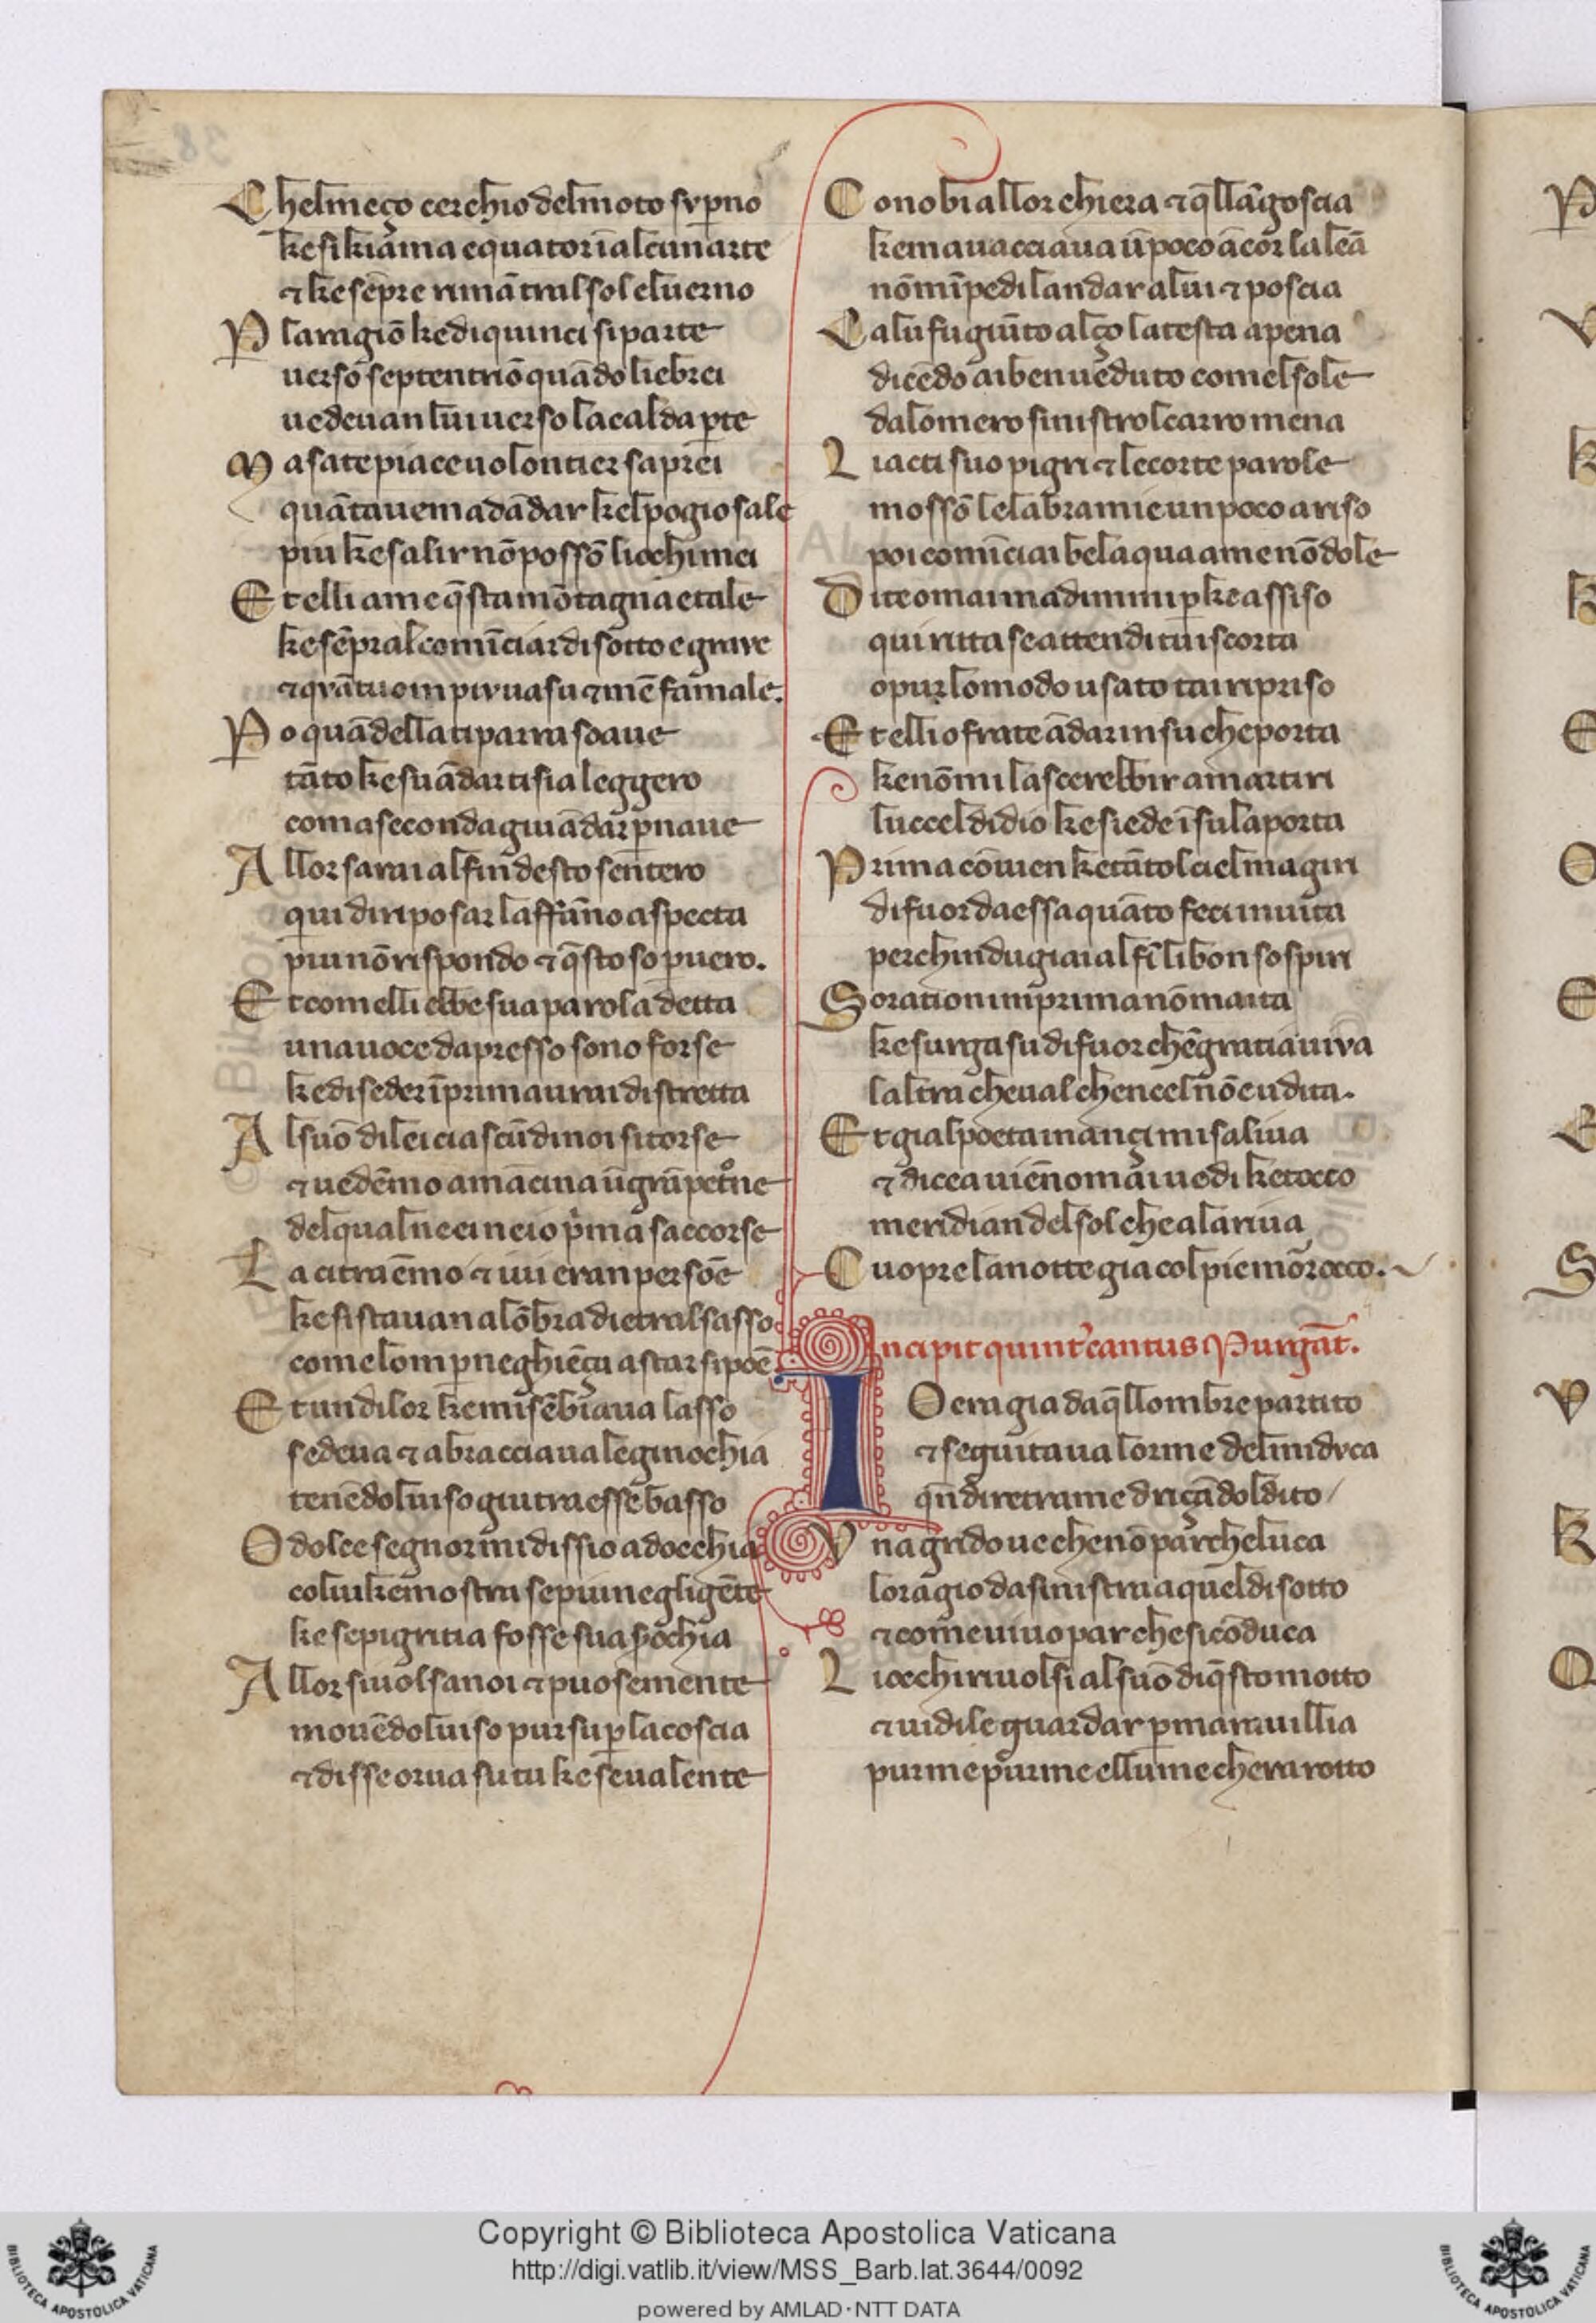 Chelmeço cerchio delmoto supno
ke si kiama equator ī alcun arte
⁊ ke sēpre riman tral sol eluerno
P la ragiō ke di quinci si parte
uerso septentriō quādo li ebrei
uedeuan lui uerso la calda pte
Ma sa te piace uolontier saprei
quāto auem ad ādar kel pogio sale
piu ke salir nō possō li occhi mei
Et elli a me q̄sta mōtagna e tale
ke sēpral comīciar di sotto e graue
⁊ qrātuom piu ua su ⁊ mē fa male.
Po quādella ti parra soaue
tāto ke su ādar ti sia leggero
com a seconda giu ādar p naue
Allor sarai al fin desto sentero
qui di riposar laffāno aspecta
piu nō rispondo ⁊ q̄sto so p uero.
Et comelli ebbe sua parola detta
una uoce da presso sono forse
ke di seder īprima aurai distretta
Al suō di lei ciascū di noi si torse
⁊ uedēmo a māca ūgrā petrōe
del qual ne ei ne io prima saccorse
La ci traēmo ⁊ iui eran persōe
ke si stauan alōbra dietral sasso
come lom p neghiēça a star si pōe
Et un di lor ke mi sēbiaua lasso
sedeua ⁊ abracciaua le ginochia
tenēdol uiso giu tra esse basso
O dolce segnor mi dissio adocchia
colui ke mostra se piu negligēte
ke se pigritia fosse sua sorochia
Allor si uolsa noi ⁊ puose mente
mouēdol uiso pur su p la coscia
⁊ disse or ua su tu ke se ualente
Conobbi allor chi era ⁊ q̄llāgoscia
ke mauacciaua ūpoco ācor la lēa
nō mīpedi landar a lui ⁊ poscia
Ca lu fu giūto alço la testa apena
dicēdo ai ben ueduto comel sole
da lomero sinistrol carro mena
Li acti suo pigri ⁊ le corte parole
mossō le labra mie un poco a riso
poi comīciai belaqua a me nō dole
Di te omai ma dimmi p ke assiso
quiritta se attendi tu iscorta
o pur lo modo usato tai ripriso
Et elli o frate ādar in su che porta
ke nō mi lascerebbir a martiri
luccel di dio ke siede ī su la porta
Prima cōuien ke tātol ciel magiri
di fuor da essa quāto feci in uita
perchindugiai al fī li bon sospiri
Soration im prima nō maita
ke surga su di fuor chē gratia uiua
laltra che ual chen ciel nō e udita.
Et gial poeta inançi mi saliua
⁊ dicea uiēnomai uedi ke tocco
meridian del sol che a la riua
Cuopre la notte gia col pie morocco.
Incipit quint' cantus Purgat̄.
IO era gia da q̄llombre partito
⁊ seguitaua lorme del mi duca
qn̄ diretra me driçādol dito
Una grido ue che nō par che luca
lo ragio da sinistra a quel di sotto
⁊ come uiuo par che si cōduca
Li occhi riuolsi al suō di q̄sto motto
⁊ uidile guardar p marauillia
pur me pur me el lume chera rotto
Copyright © Biblioteca Apostolica Vaticana
http://digi.vatlib.it/view/MSS_Barb.lat.3644/0092
powered by AMLAD·NTT DATA